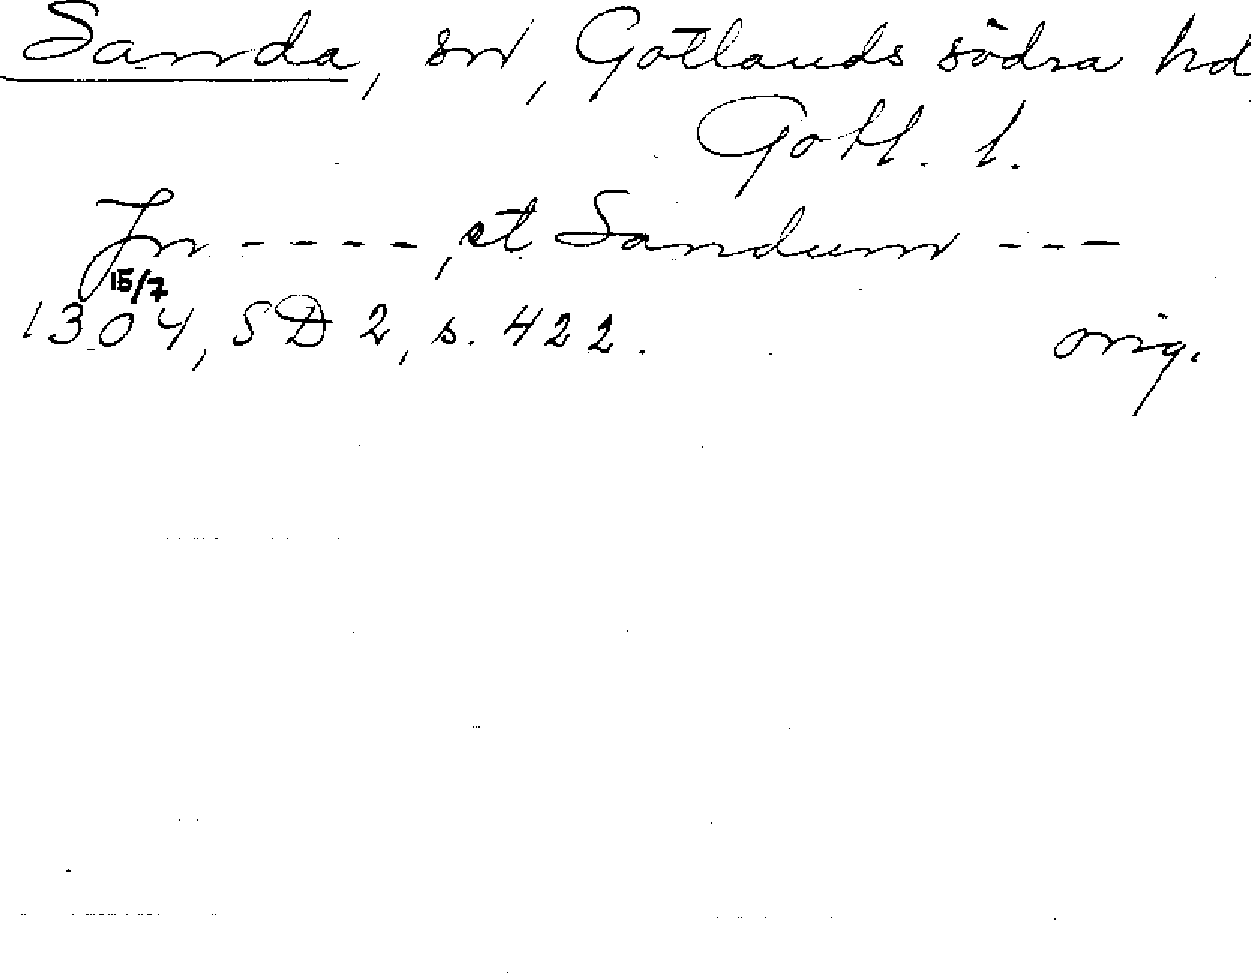 Sanda, sn, Gotlands södra hd
Gotl. l.
Jn ----, et Sandum ---
15/7
1304, SD 2, s. 422. orig.